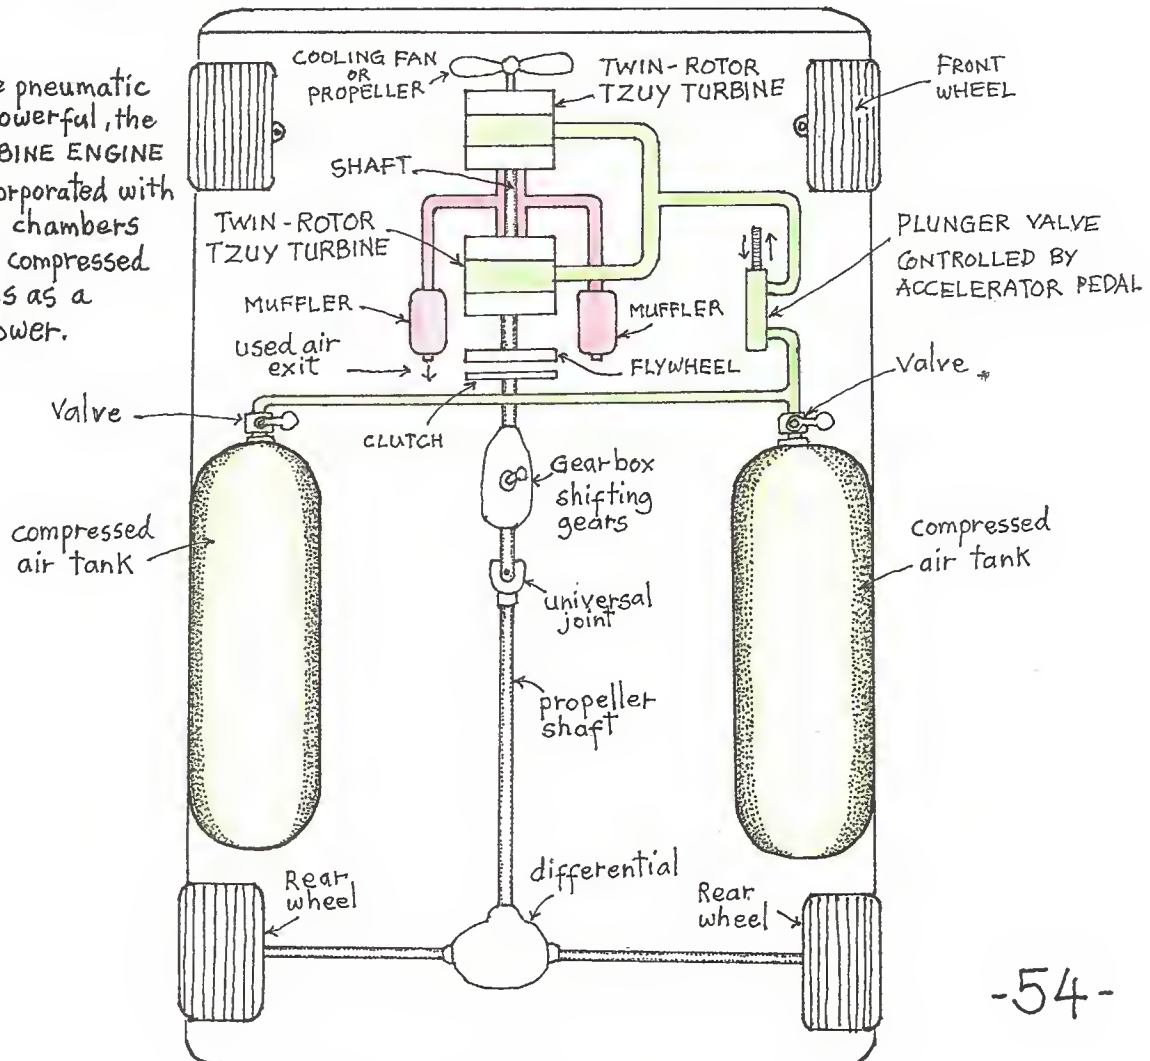 e pneumatic
owerful, the
BINE ENGINE
orporated with
chambers
compressed
s as a
ower.
COOLING FAN
OR
PROPELLER
TWIN-ROTOR
TZUY TURBINE
FRONT
WHEEL
SHAFT
TWIN-ROTOR
TZUY TURBINE
PLUNGER VALVE
CONTROLLED BY
ACCELERATOR PEDAL
MUFFLER
MUFFLER
used air
exit
FLYWHEEL
Valve
Valve
CLUTCH
Gearbox
shifting
gears
compressed
air tank
compressed
air tank
universal
joint
propeller
shaft
differential
Rear
wheel
Rear
wheel
-54-